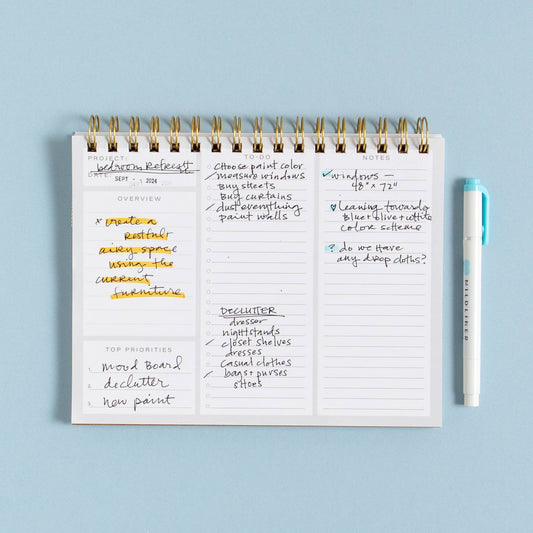 PROJECT:
bedroom Refresh
DATE: SEPT 2024
OVERVIEW
* create a
restful
airy space
using the
current
furniture
TOP PRIORITIES
1. mood Board
2. declutter
3. new paint
TO-DO
Choose paint color
✓ measure windows
Buy sheets
Buy curtains
✓ dust everything
paint walls
DECLUTTER
dresser
nightstands
✓ closet shelves
dresses
casual clothes
✓ bags + purses
shoes
NOTES
✓ windows —
48" x 72"
♥ leaning towards
blue + olive + white
color scheme
? do we have
any drop cloths?
MILDLINER